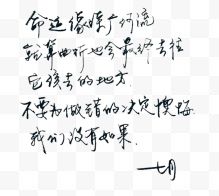 命运像条广河流
就算曲折也会最终去往
应该去的地方.
不要为做错的决定懊悔
我们没有如果.
七月